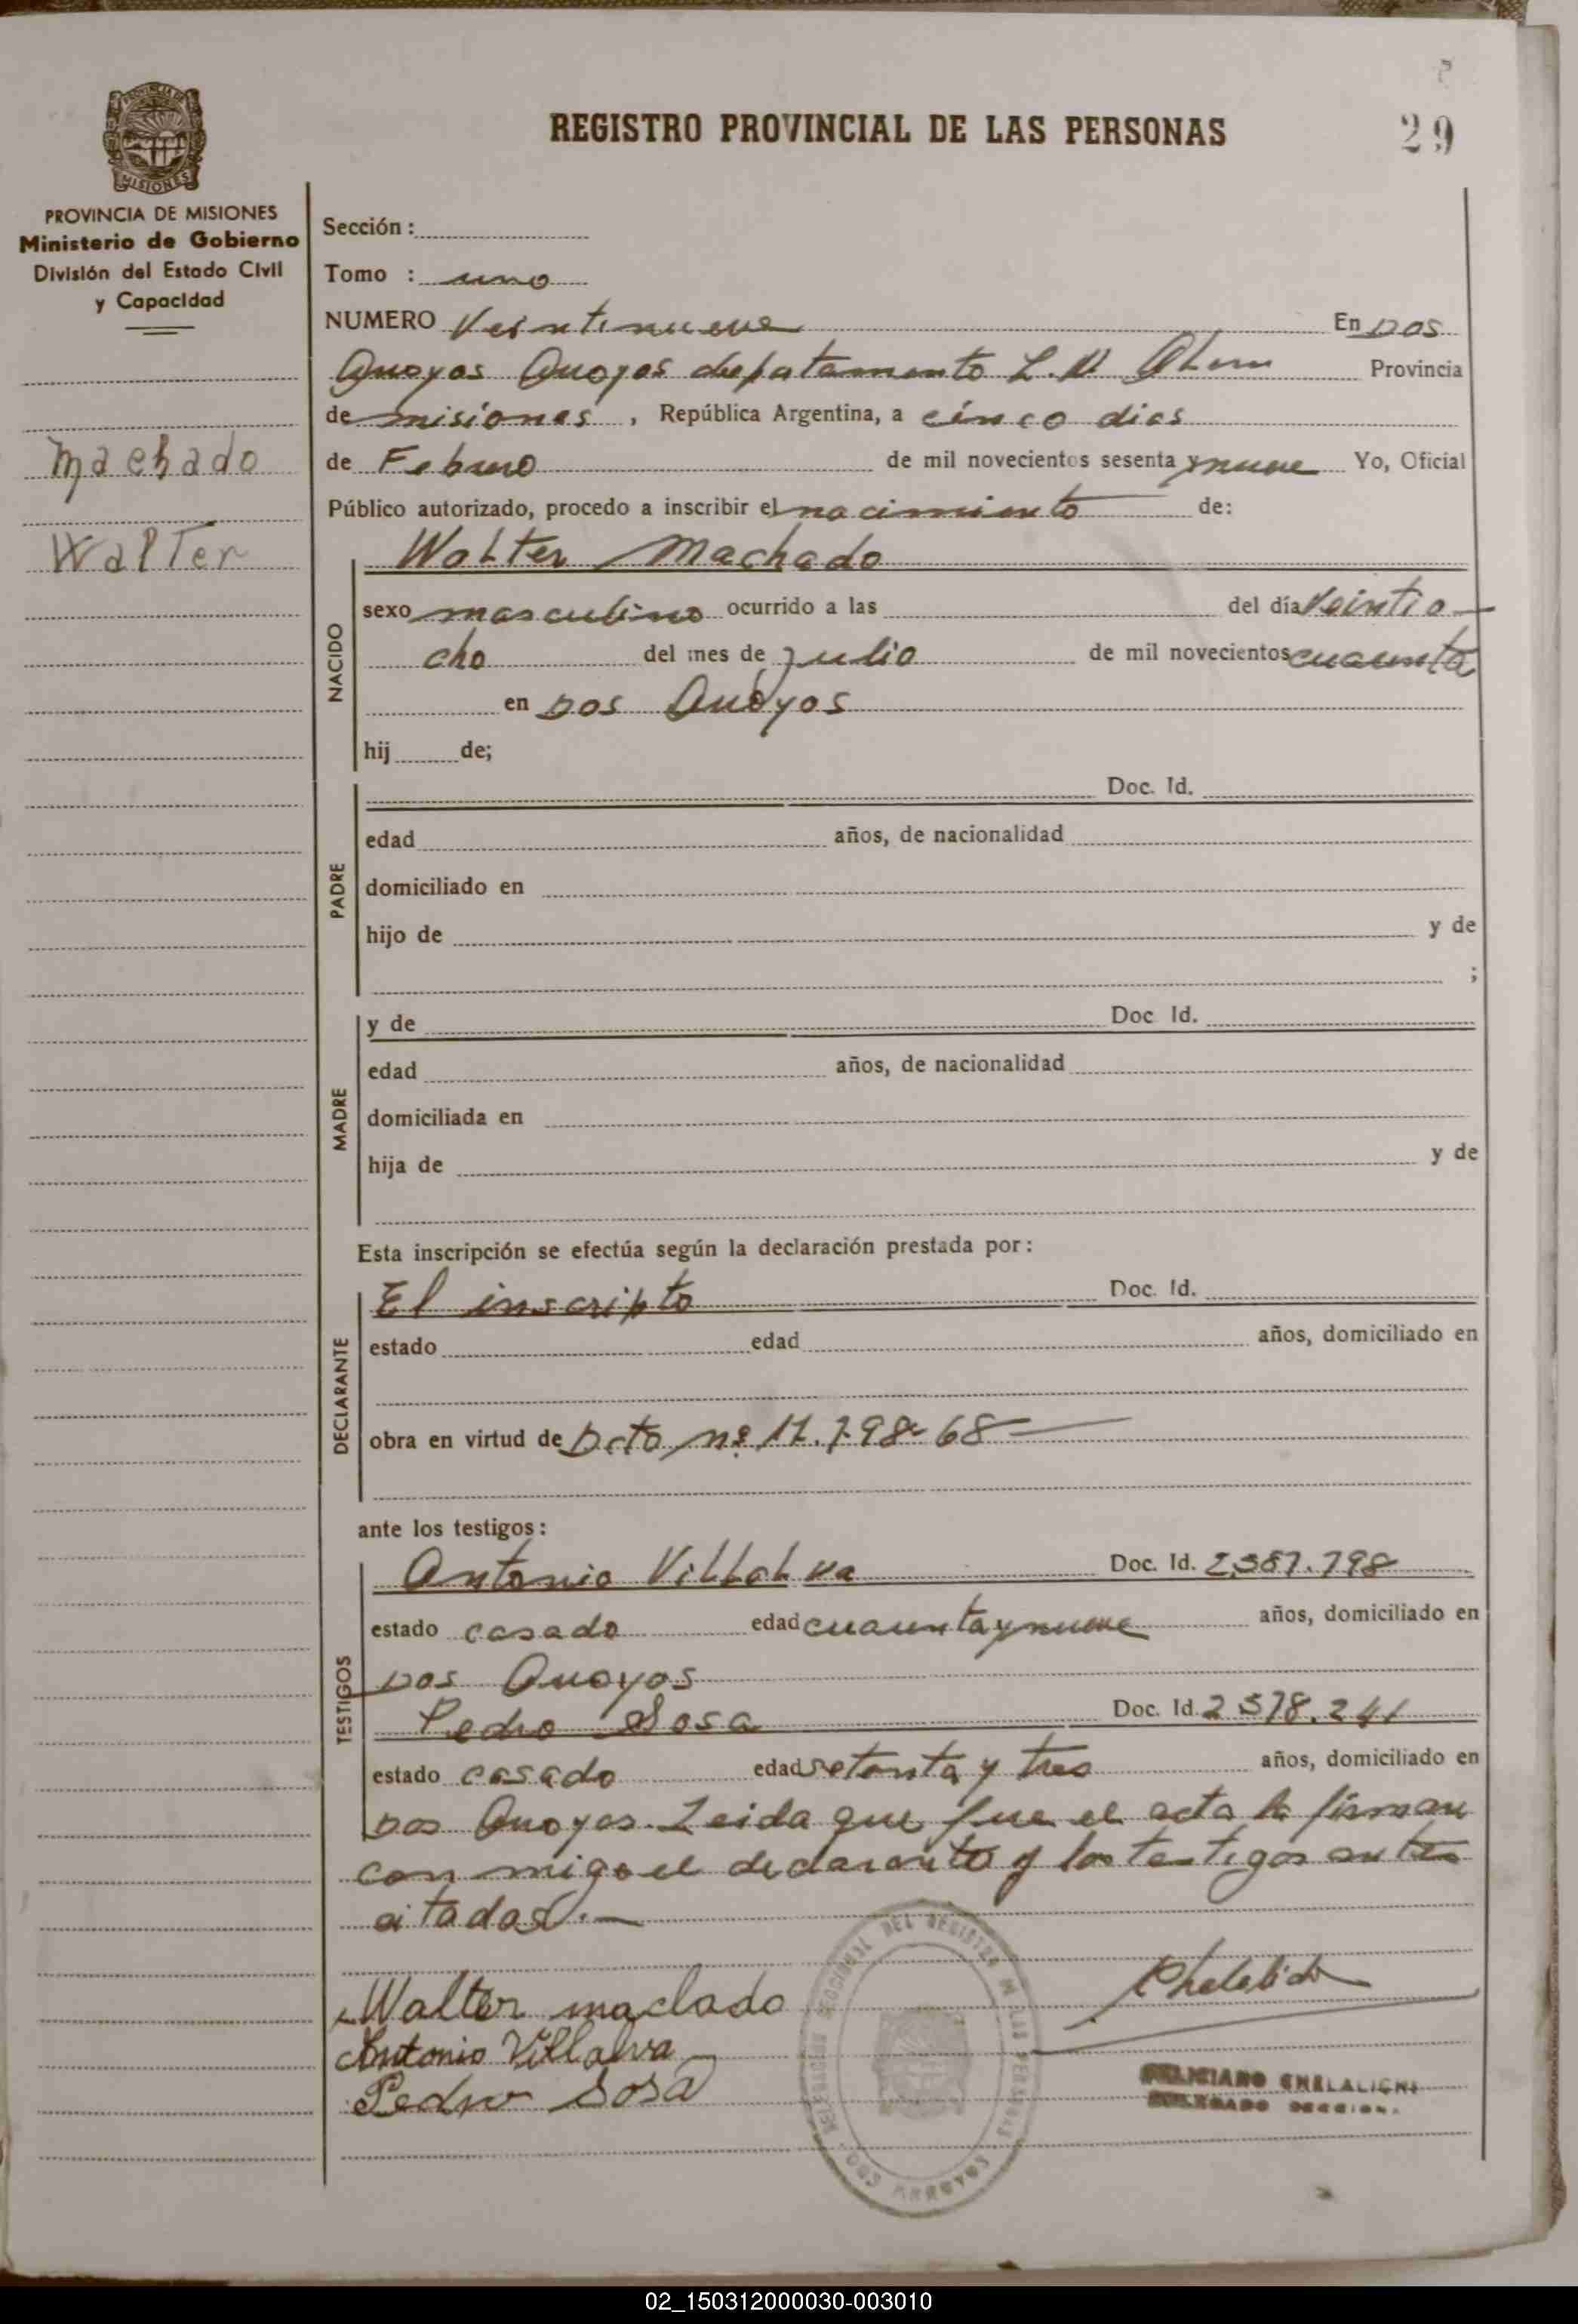 REGISTRO PROVINCIAL DE LAS PERSONAS
29
MISIONES
PROVINCIA DE MISIONES
Ministerio de Gobierno
División del Estado Civil
y Capacidad
Machado
Walter
Sección :
Tomo : uno
NUMERO Veintinueve En Dos
Arroyos Arroyos departamento L. N. Alem Provincia
de misiones , República Argentina, a cinco dias
de Febrero de mil novecientos sesenta y nueve Yo, Oficial
Público autorizado, procedo a inscribir el nacimiento de:
NACIDO
Walter Machado
sexo masculino ocurrido a las del día Veintio
cho del mes de Julio de mil novecientos cuarenta
en Dos Arroyos
hij de;
PADRE
Doc. Id.
edad años, de nacionalidad
domiciliado en
hijo de y de
;
MADRE
y de Doc Id.
edad años, de nacionalidad
domiciliada en
hija de y de
Esta inscripción se efectúa según la declaración prestada por :
DECLARANTE
El inscripto Doc. Id.
estado edad años, domiciliado en
obra en virtud de Dcto nº 17.798-68
ante los testigos :
TESTIGOS
Antonio Villalva Doc. Id. 2587.798
estado casado edad cuarenta y nueve años, domiciliado en
Dos Arroyos
Pedro Sosa Doc. Id. 2578.241
estado casado edad setenta y tres años, domiciliado en
Dos Arroyos. Leida que fue el acta la firman
con migo el declarante y los testigos antes
citados.-
Walter machado
Antonio Villalva
Pedro Sosa
DEL REGISTRO DE LAS PERSONAS
DOS ARROYOS
CHELALICHE
02_150312000030-003010